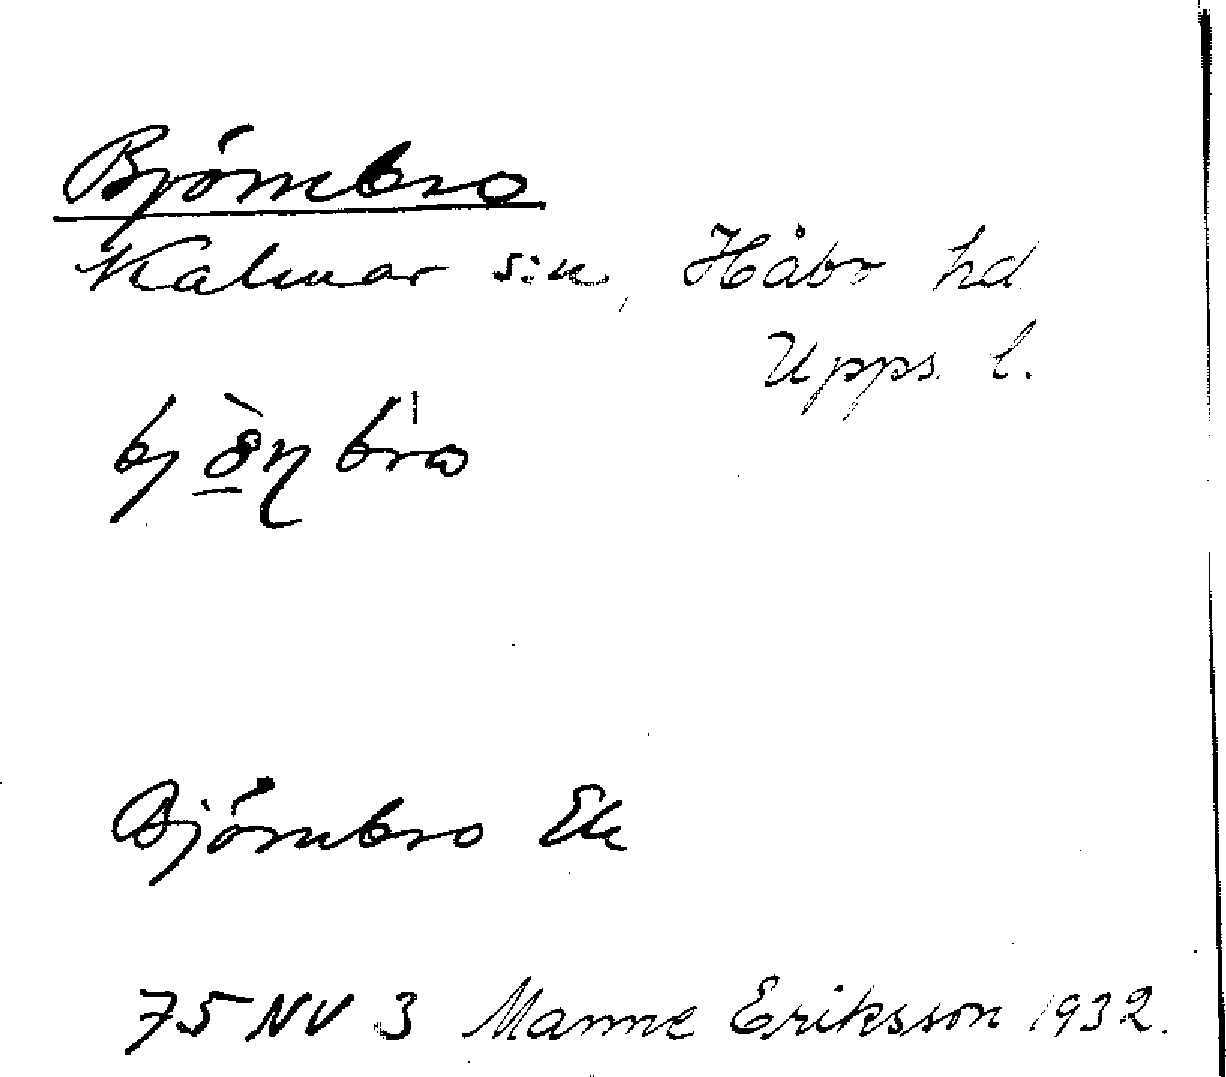 Björnbro
Kalmar sn, Håbo hd
Upps. l.
Björnbro Ek
75 NV 3 Manne Eriksson 1932.